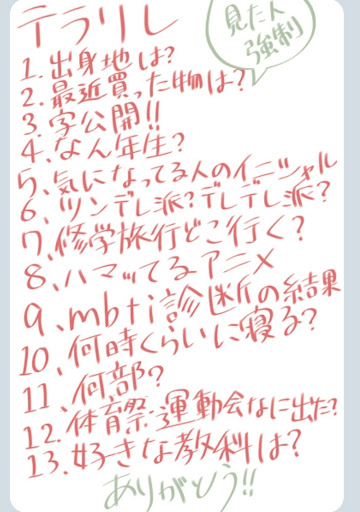 テラリレ
見た人
強制
1.出身地は?
2.最近買った物は?
3.字公開!!
4.なん年生?
5、気になってる人のイニシャル
6、ツンデレ派?デレデレ派?
7、修学旅行どこ行く?
8、ハマッてるアニメ
9、mbti診断の結果
10、何時くらいに寝る?
11、何部?
12.体育祭・運動会なに出た?
13.好きな教科は?
ありがとう!!